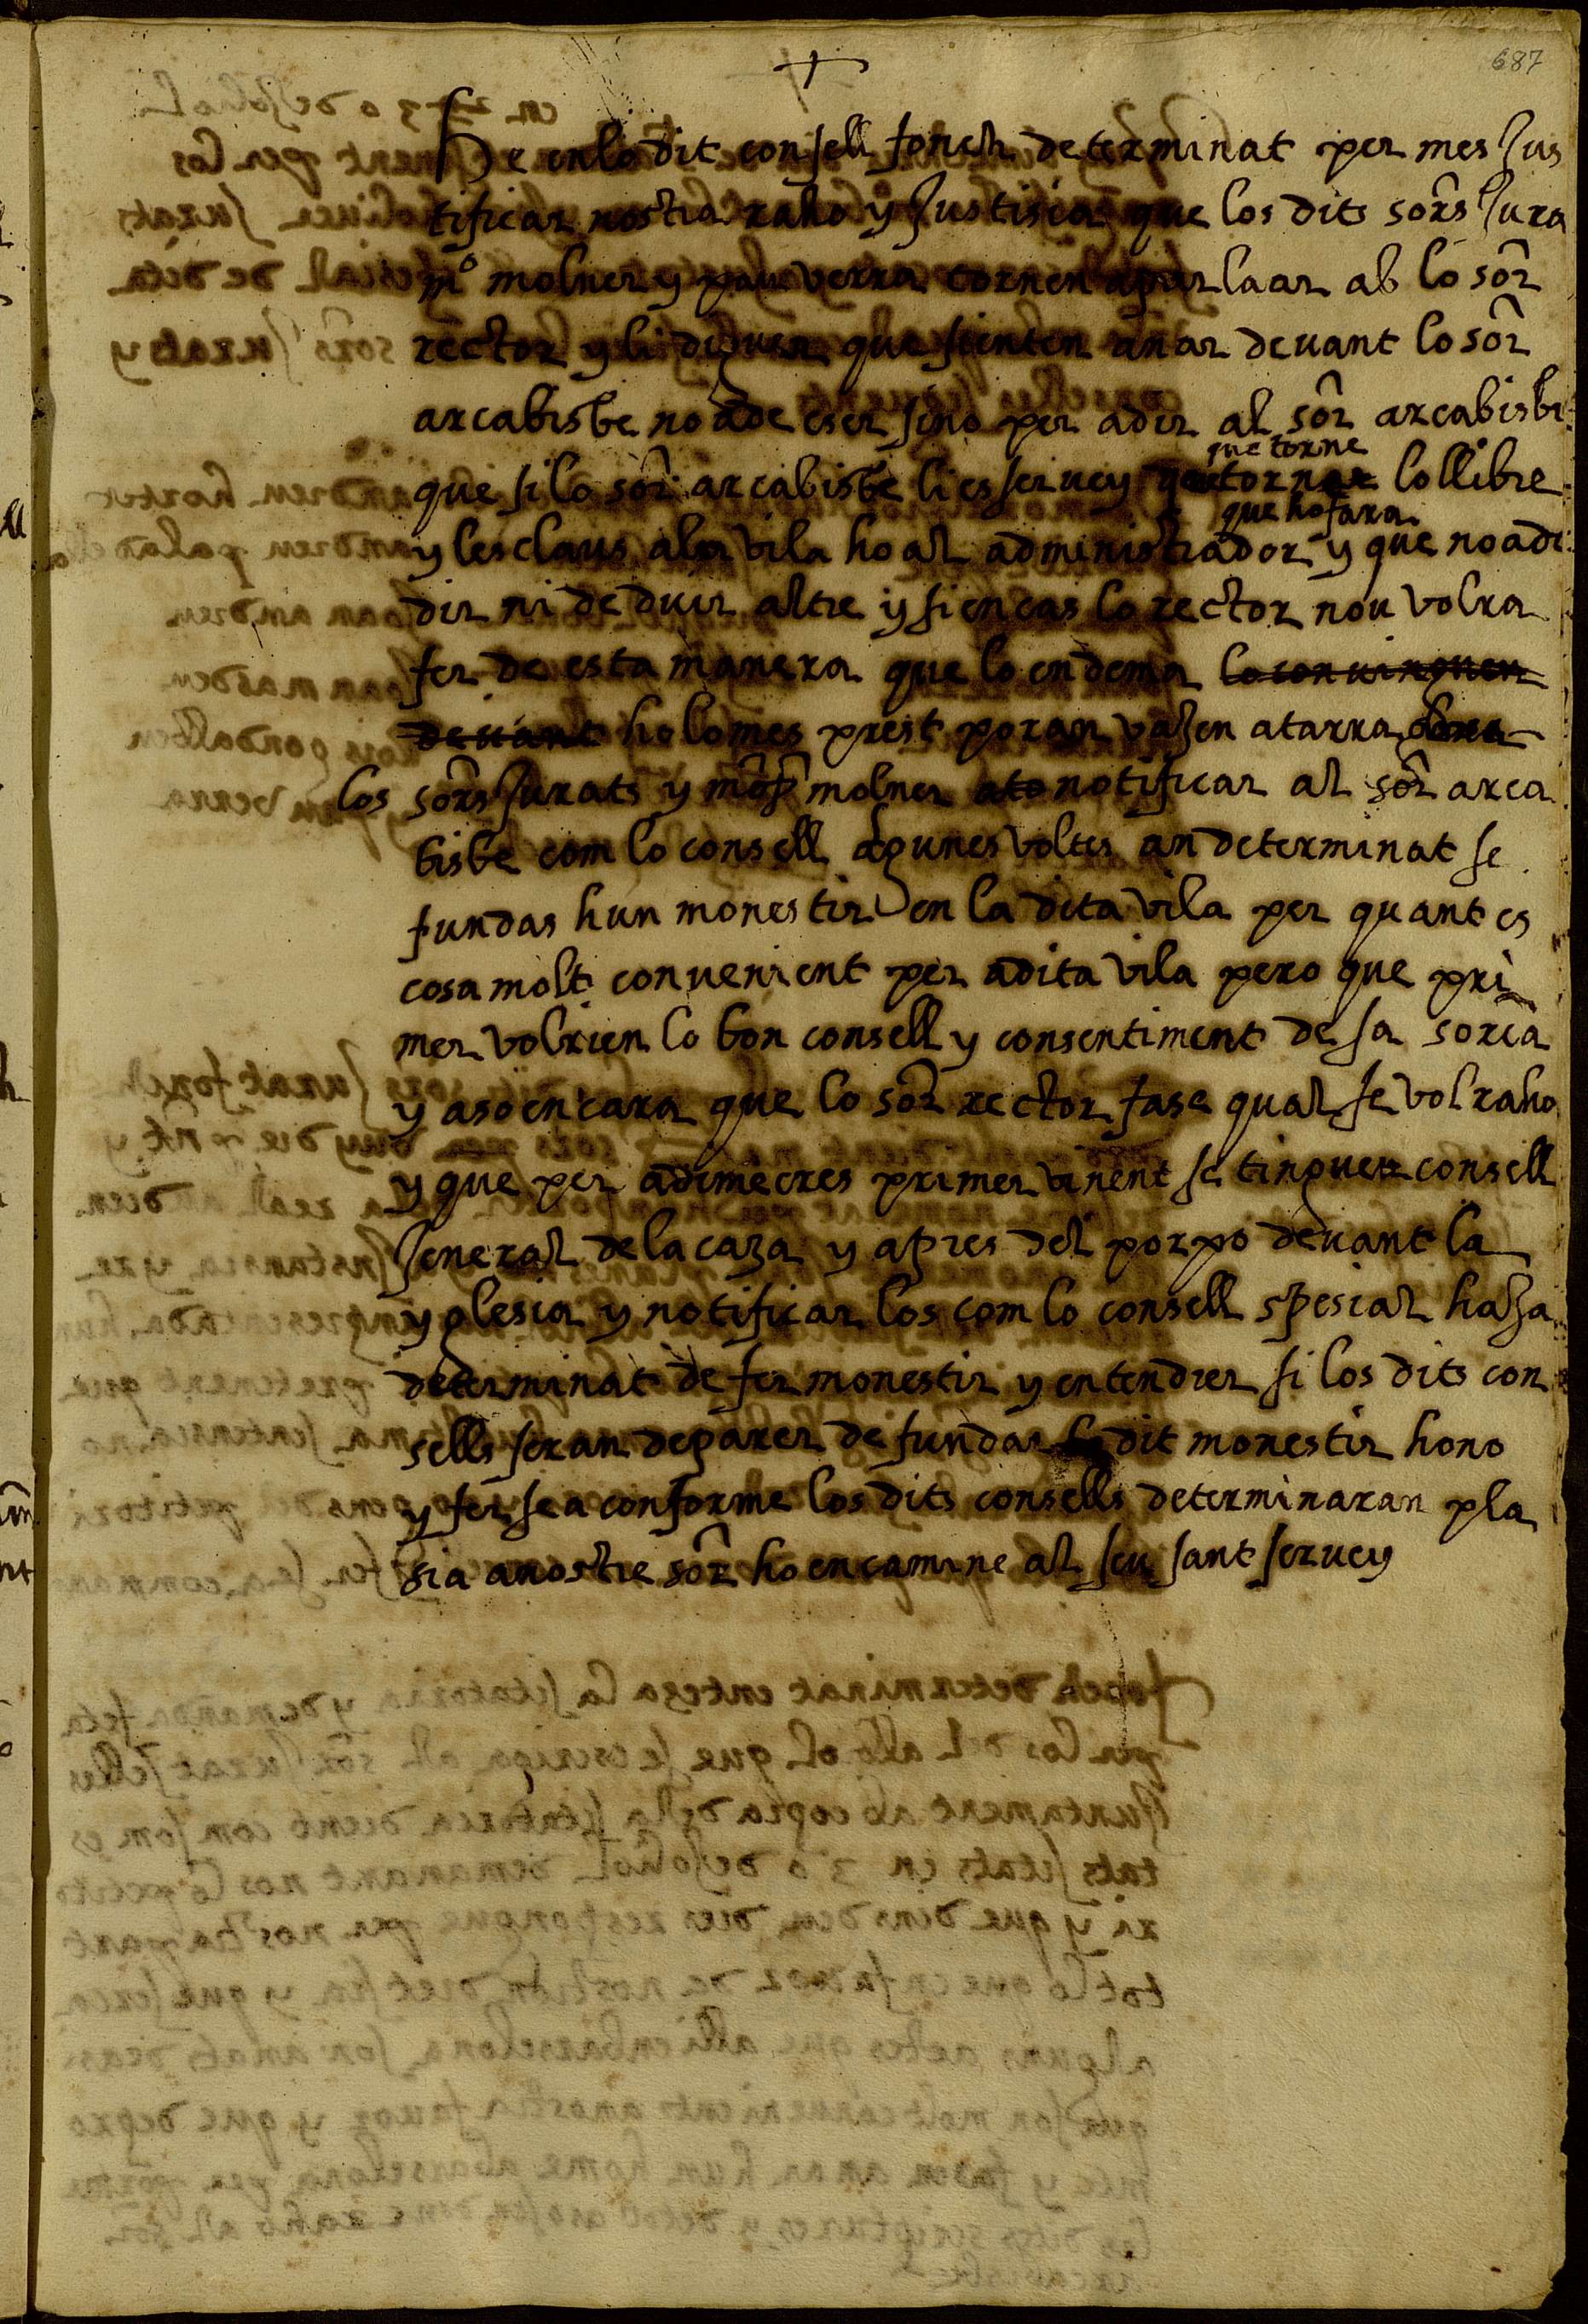 687
He en lo dit consell fonch determinat per mes Jus
tificar nostra raho y Justisia que los dits sors Jura
mº molner y pau verra tornen aparlaar ab lo sor
rector y li diguen que sienten anar devant lo sor
arcabisbe no a de eser sino per a dir al sor arcabisbe
que si lo sor arcabisbe li es servey que torne lo llibre
y les claus a la vila ho al administrador que ho fara y que no a de
dir ni de duir altre y si en cas lo rector nou volra
fer de esta manera que lo endema lo convinguen
devant ho lo mes prest poran vagen a tarragona
los sors Jurats y mº molner notificar al sor arca
bisbe com lo consell algunes voltes an determinat se
fundas hun monestir en la dita vila per quant es
cosa molt convenient per a dita vila pero que pri
mer volrien lo bon consell y consentiment de sa soria
y aso encara que lo sor rector fase qual se vol raho
y que per a dimecres primer vinent se tinguen consell
Jeneral de la caza y apres del porpo devant la
yglesia y notificar los com lo consell spesial haja
determinat de fer monestir y entendrer si los dits con
sells seran de parer de fundar lo dit monestir ho no
y fer se a conforme los dits consells determinaran pla
sia a nostre sor ho encamine al seu sant servey